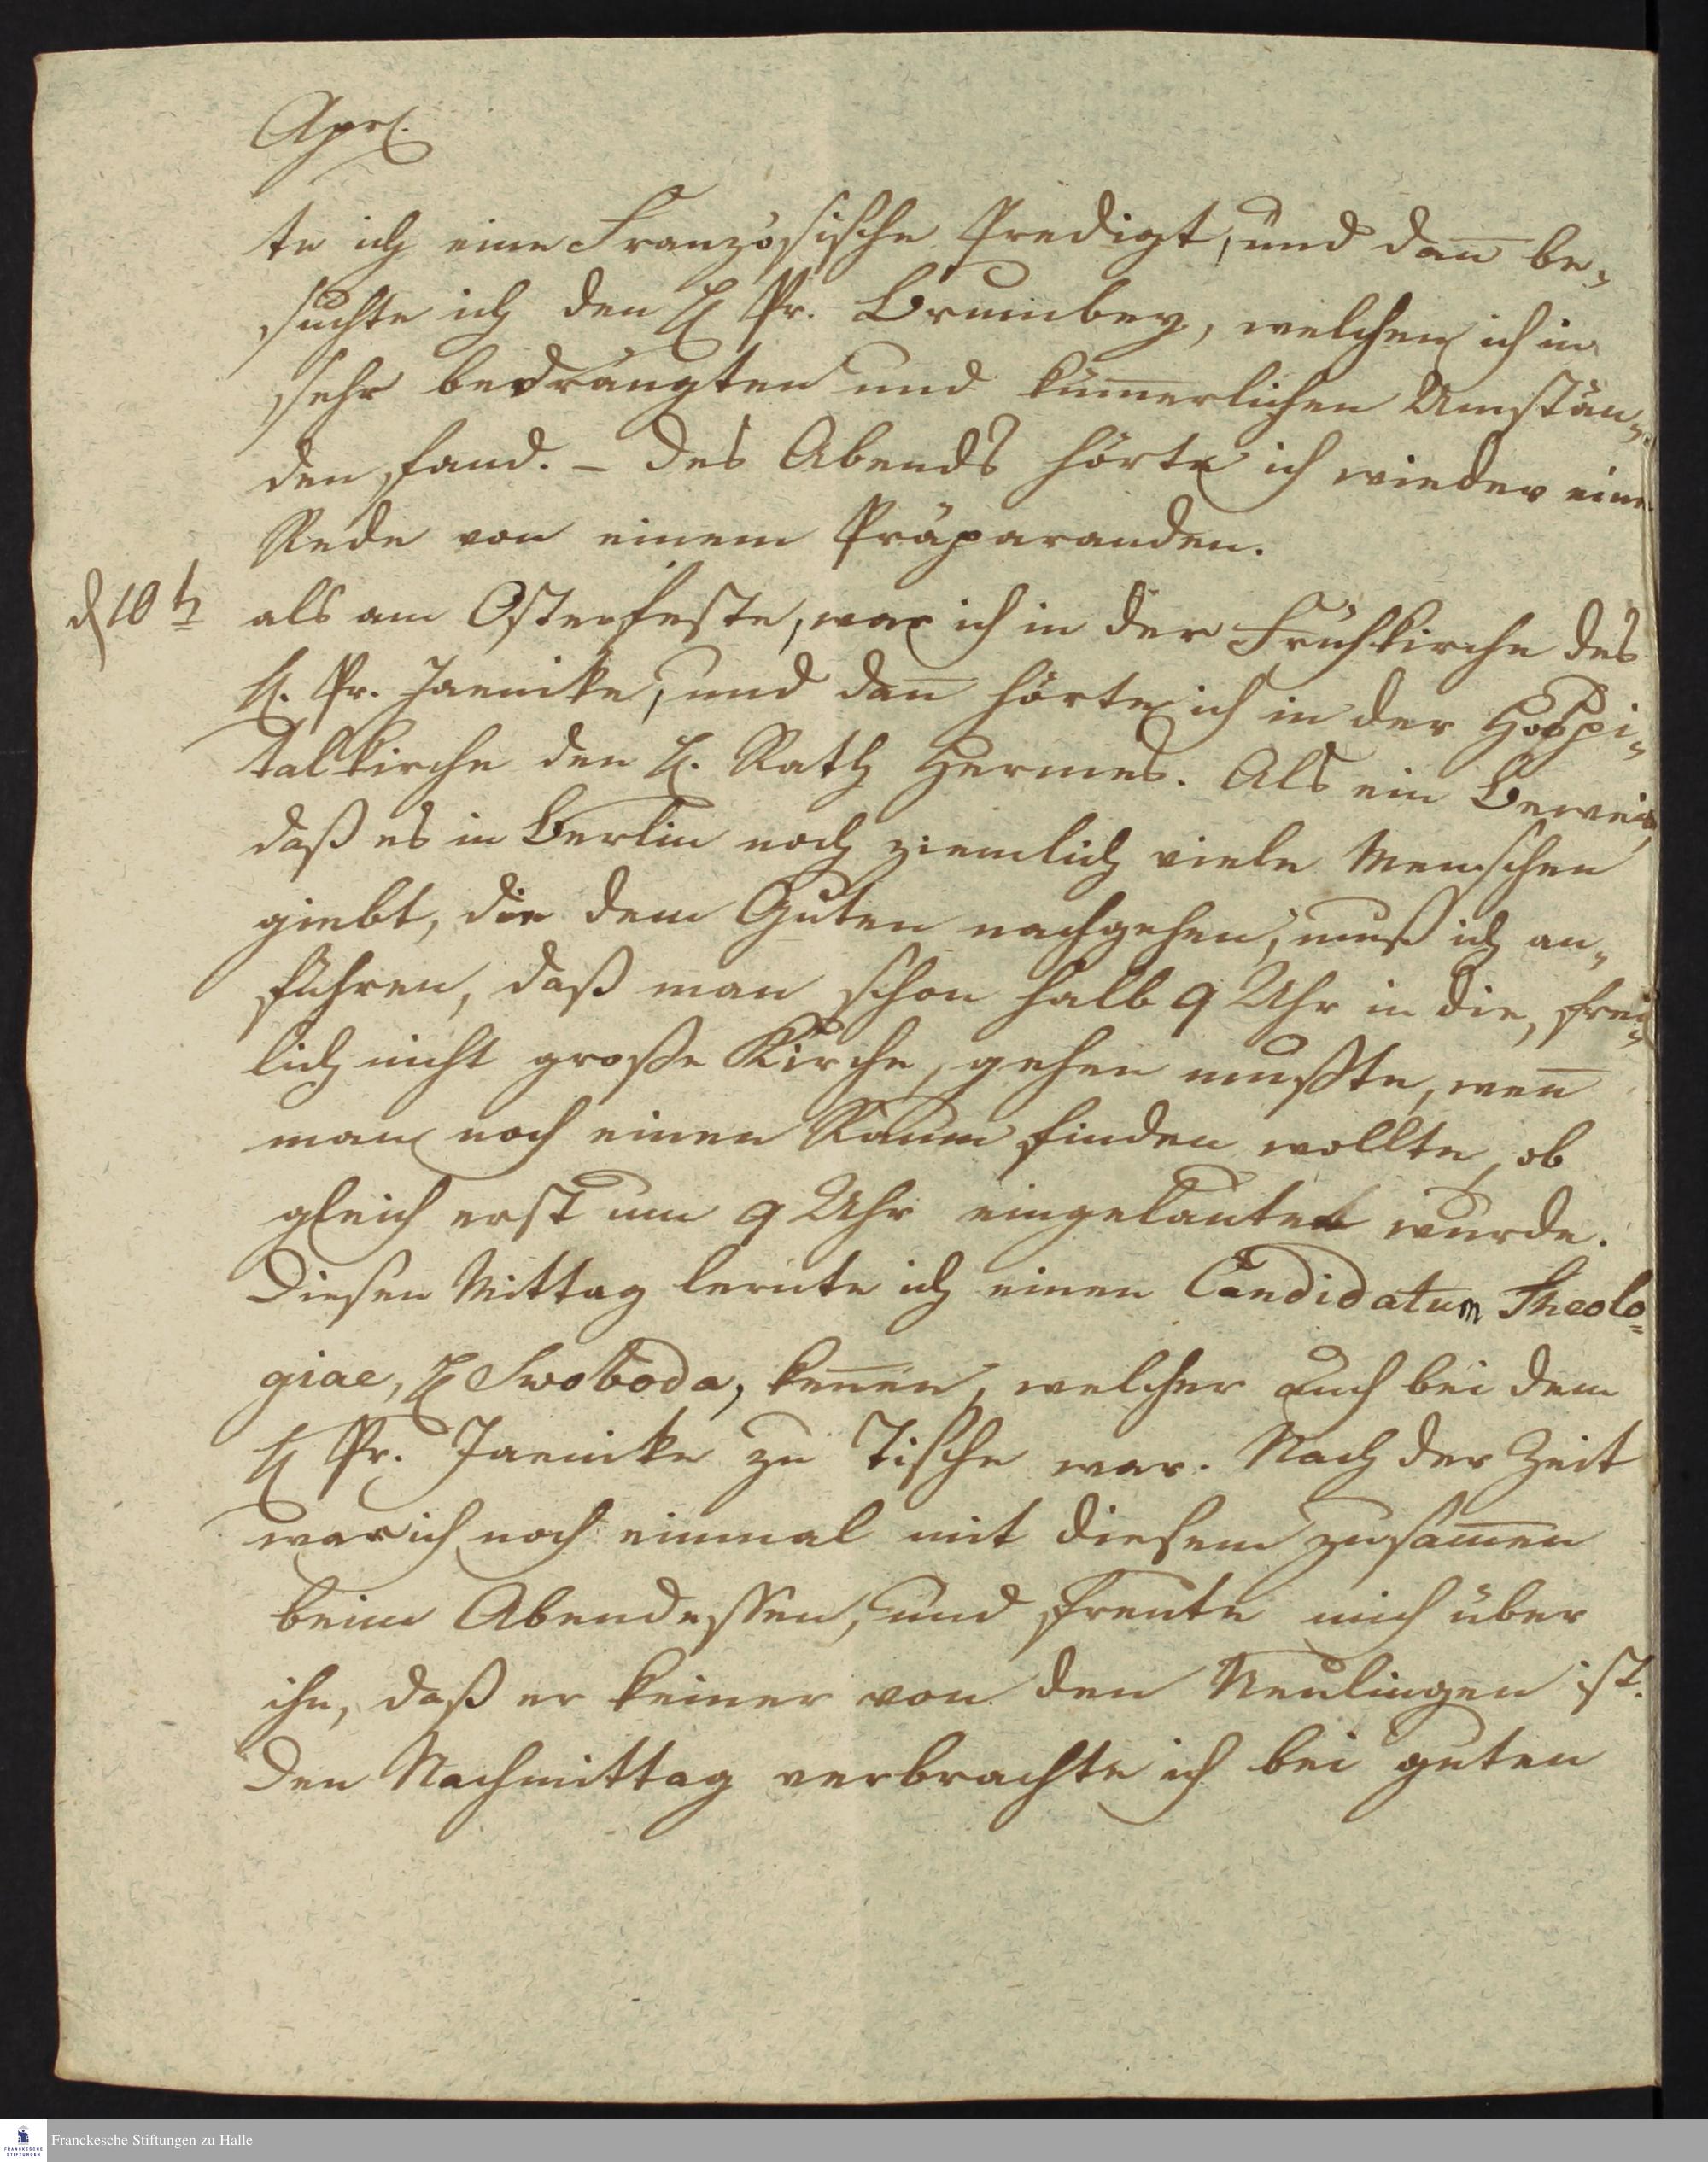 Aprl.
te ich eine Französische Predigt, und dan̄ be-
suchte ich den H Pr. Brumbey, welchen ich in
sehr bedrängten und kum̄erlichen Umstän-
den fand. – Des Abends hörte ich wieder eine
Rede von einem Präparanden.
d 10 t. als am Osterfeste, war ich in der Frühkirche des
H. Pr. Jaenike, und dan̄ hörte ich in der Hospi-
talkirche den H. Rath Hermes. Als ein Beweis,
daß es in Berlin noch ziemlich viele Menschen
giebt, die dem Guten nachgehen, muß ich an-
führen, daß man schon halb 9 Uhr in die, frei-
lich nicht große Kirche, gehen mußte, wen̄
man noch einen Raum finden wollte, ob
gleich erst um 9 Uhr eingelautet wurde.
Diesen Mittag lernte ich einen Candidatum Theolo-
giae, H Swoboda, ken̄en, welcher auch bei dem
H Pr. Jaenike zu Tische war. Nach der Zeit
war ich noch einmal mit diesem zusam̄en
beim Abendessen, und freute mich über
ihn, daß er keiner von den Neulingen ist.
Den Nachmittag verbrachte ich bei guten
FRANCKESCHE STIFTUNGEN
Franckesche Stiftungen zu Halle